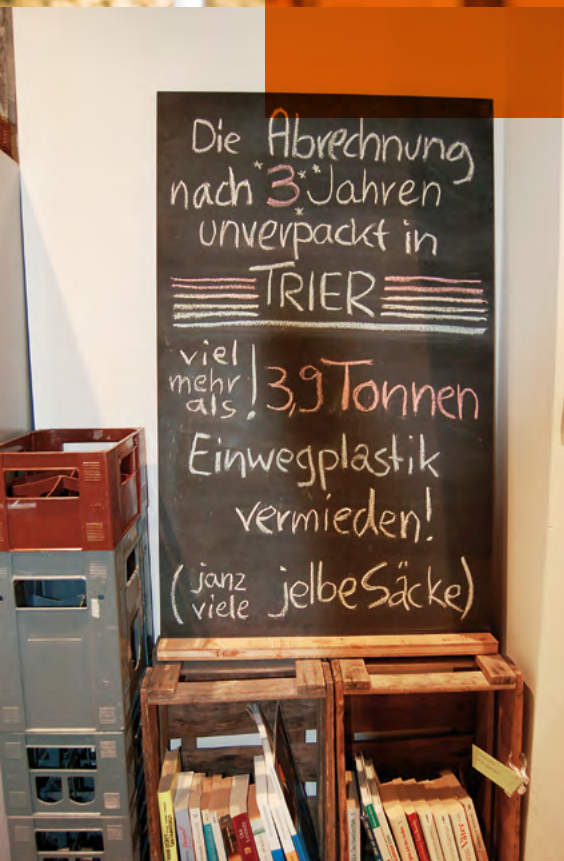 Die Abrechnung
nach 3 Jahren
unverpackt in
TRIER
viel
mehr
als! 3,9 Tonnen
Einwegplastik
vermieden!
(janz
viele jelbe Säcke)